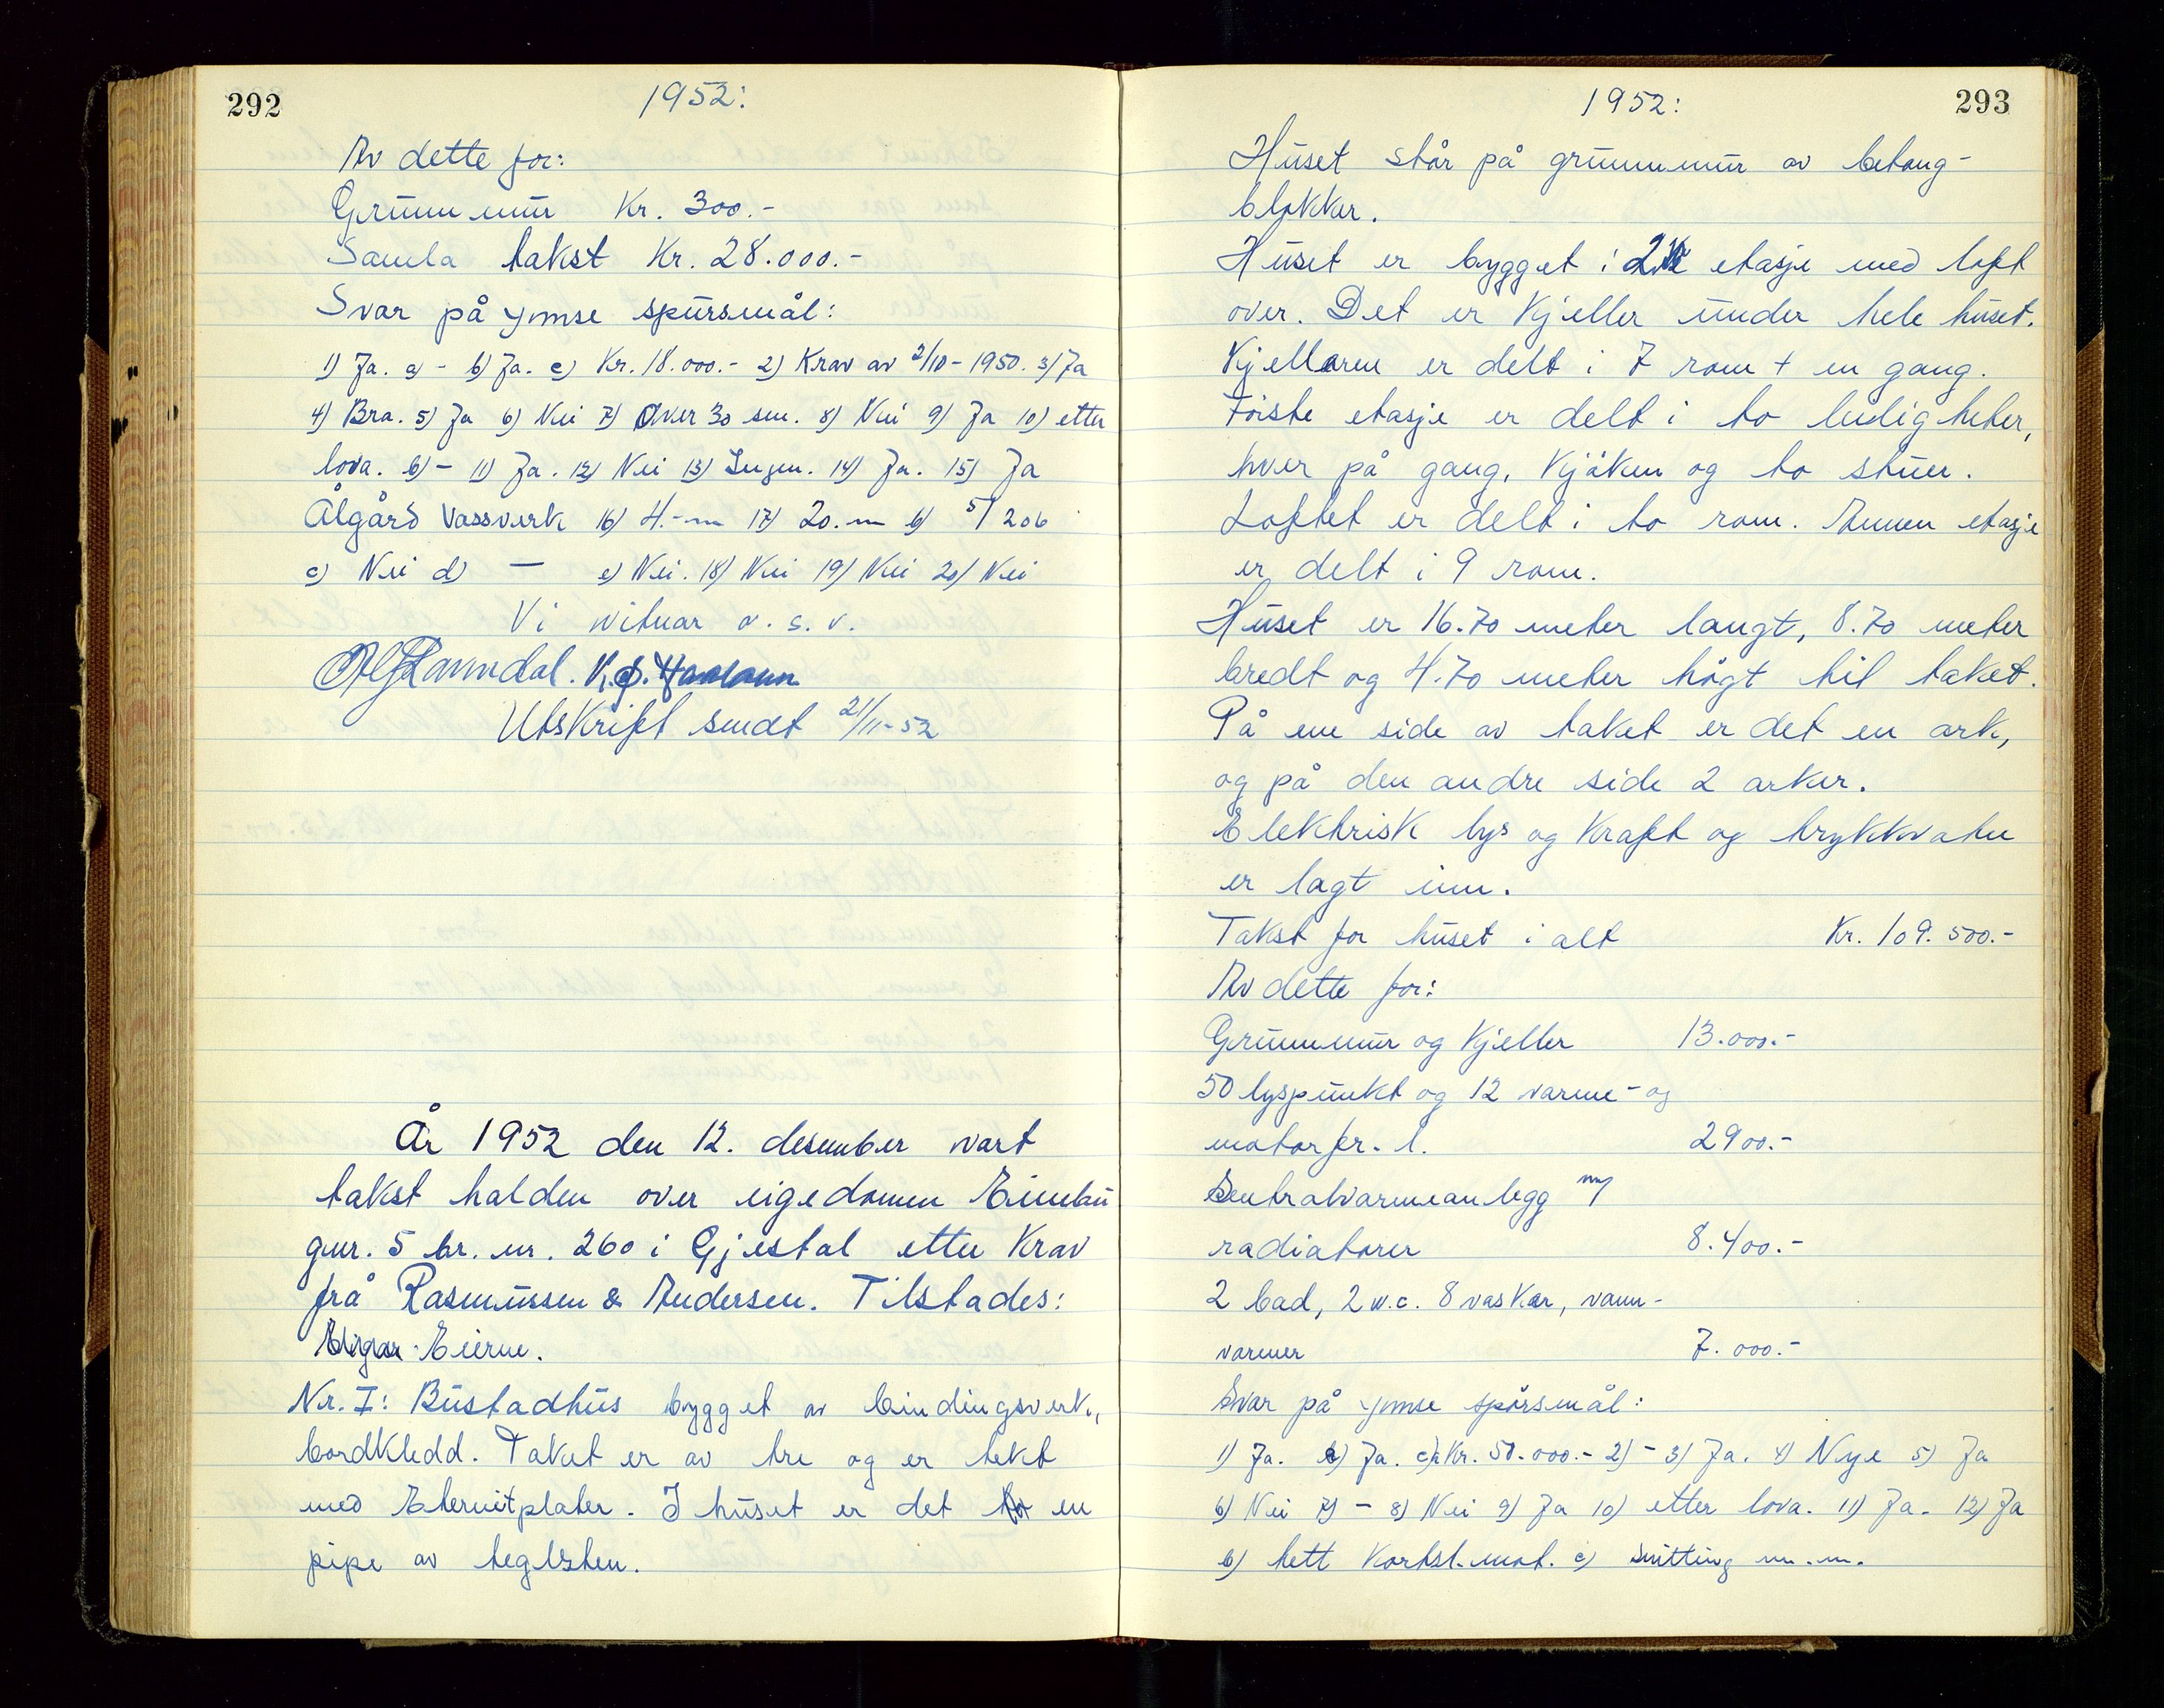 292
1952:
Av dette for:
Grunnmur Kr. 300.-
Samla takst Kr. 28.000.-
Svar på ymse spursmål:
1) Ja. a) - b) Ja. c) Kr. 18.000.- 2) Krav av 2/10-1950. 3) Ja
4) Bra. 5) Ja 6) Nei 7) Over 30 sm. 8) Nei 9) Ja 10) etter
lova. b) - 11) Ja. 12) Nei 13) Ingen. 14) Ja. 15) Ja
Ålgård Vassverk 16) 4.-m 17) 20.m b) 5/206
c) Nei d) - e) Nei. 18) Nei 19) Nei 20) Nei
Vi vitnar o. s. v.
Utskrift sendt 21/11-52
År 1952 den 12. desember vart
takst halden over eigedomen Eimtun
gnr. 5 br. nr. 260 i Gjestal etter Krav
frå Rasmussen & Andersen. Tilstades:
Eierne.
Nr. I: Bustadhus bygget av bindingsverk,
bordkledd. Taket er av tre og er tekt
med Eternitplater. I huset er det en
pipe av teglsten.
1952:
293
Huset står på grunnmur av betong-
blokker.
Huset er bygget i 2 etasje med loft
over. Det er Kjeller under hele huset.
Kjelleren er delt i 7 rom + en gang.
Første etasje er delt i to leiligheter,
hver på gang, Kjøken og to stuer.
Loftet er delt i to rom. Annen etasje
er delt i 9 rom.
Huset er 16.70 meter langt, 8.70 meter
bredt og 4.70 meter høgt til taket.
På ene side av taket er det en ark,
og på den andre side 2 arker.
Elektrisk lys og Kraft og trykkvatn
er lagt inn.
Takst for huset i alt Kr. 109.500.-
Av dette for:
Grunnmur og Kjeller 13.000.-
50 lyspunkt og 12 varme- og
motorkr. l. 2900.-
Sentralvarmeanlegg m/
radiatorer 8.400.-
2 bad, 2 w.c. 8 vasker, vann-
varmer 7.000.-
Svar på ymse spørsmål:
1) Ja. b) Ja. c) Kr. 50.000.- 2) - 3) Ja. 4) Nye 5) Ja
6) Nei 7) - 8) Nei 9) Ja 10) etter lova. 11) Ja. 12) Ja
b) tett Kortsl. mot. c) smitting m.m.